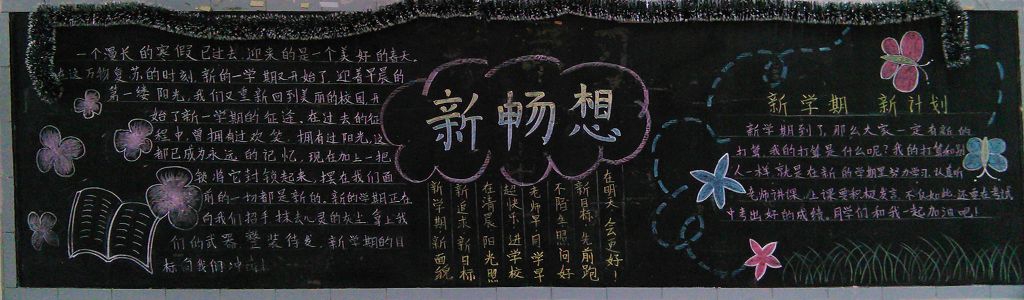 一个漫长的寒假已过去,迎来的是一个美好的春天。
在这万物复苏的时刻,新的一学期又开始了,迎着早晨的
第一缕阳光,我们又重新回到美丽的校园,开
始了新一学期的征途。在过去的征
程中,曾拥有过欢笑,拥有过阳光,这
都已成为永远的记忆,现在加上一把
锁将它封锁起来,摆在我们面
前的一切都是新的。新的学期正在
向我们招手,抹去心灵的灰尘,拿上我
们的武器,整装待发,新学期的目
标向我们冲
新畅想
新学期新面貌
新追求新目标
在清晨阳光照
超快乐进学校
老师早同学早
不陌生照问好
新目标先前跑
在明天会更好!
新学期 新计划
新学期到了,那么大家一定有新的
打算,我的打算是什么呢?我的打算和别
人一样,就是在新的学期里努力学习,认真听
老师讲课,上课要积极发言,不仅如此,还要在考试
中考出好的成绩,同学们和我一起加油吧!